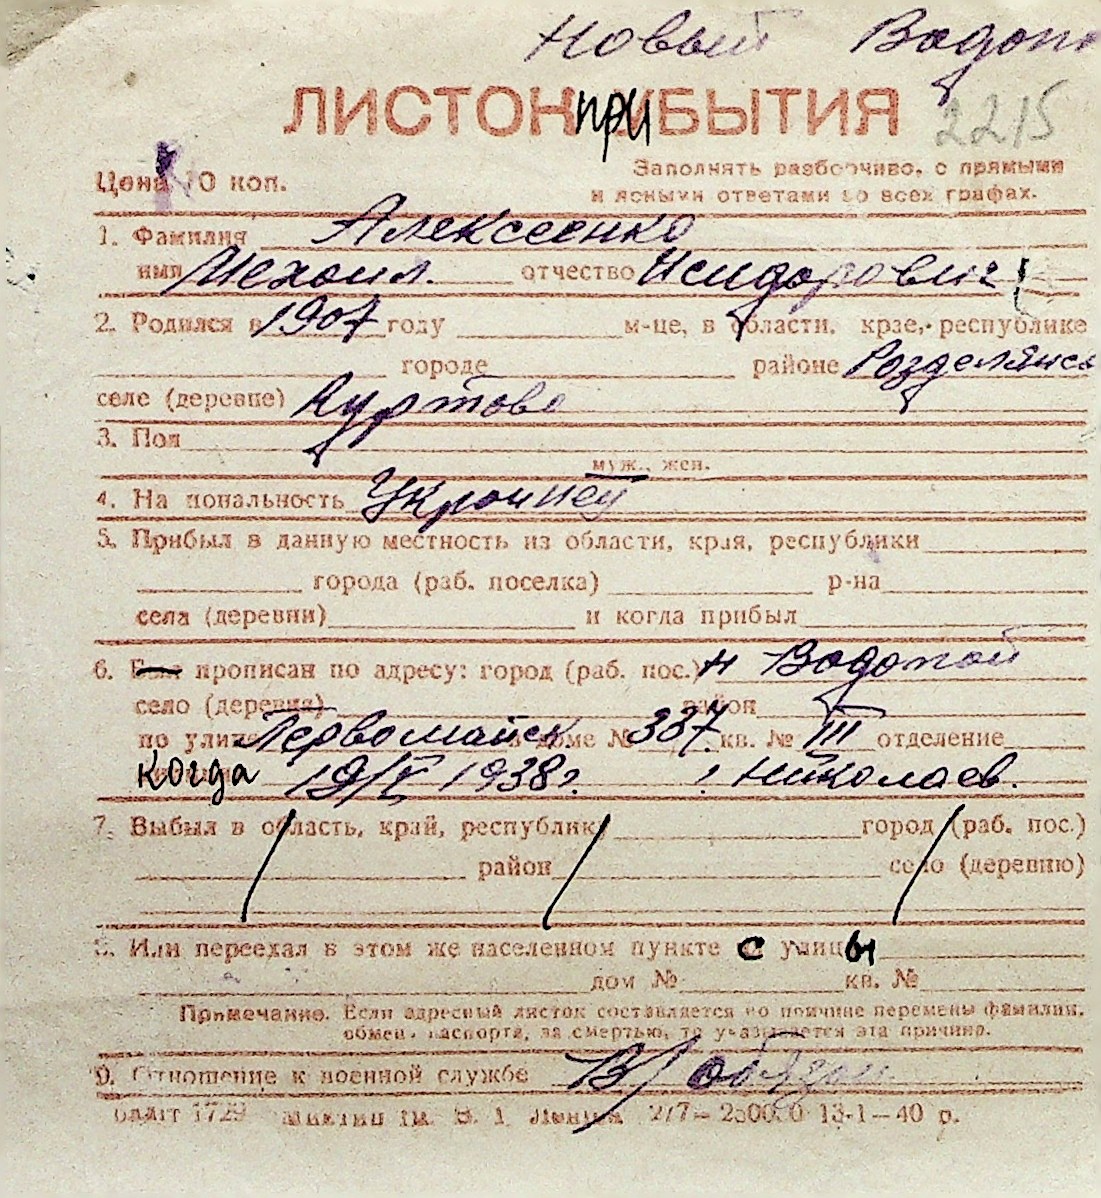 Новый Водоп
ЛИСТОК при БЫТИЯ
2215
Цена 10 коп.
Заполнять разборчиво, с прямыми
и ясными ответами во всех графах.
1. Фамилия Алексеенко
имя Михаил. отчество Исидорович
2. Родился в 1907 году м-це, в области, крае, республике
городе районе Розделянск
селе (деревне) Куртово
3. Пол
муж., жен.
4. Национальность Украинец
5. Прибыл в данную местность из области, края, республики
города (раб. поселка) р-на
села (деревни) и когда прибыл
6. прописан по адресу: город (раб. пос.) Н Водопой
село (деревня) район
по улице Первомайск в доме № 337 кв. № III отделение
когда 19/V 1938 г. г. Николаев.
7. Выбыл в область, край, республику город (раб. пос.)
район село (деревню)
8. Или переехал в этом же населенном пункте с улицы
дом № кв. №
Примечание. Если адресный листок составляется по причине перемены фамилии,
обмен. паспорта, за смертью, то указывается эта причина.
9. Отношение к военной службе В/обязан
1729 277—2500.0 13-1—40 р.